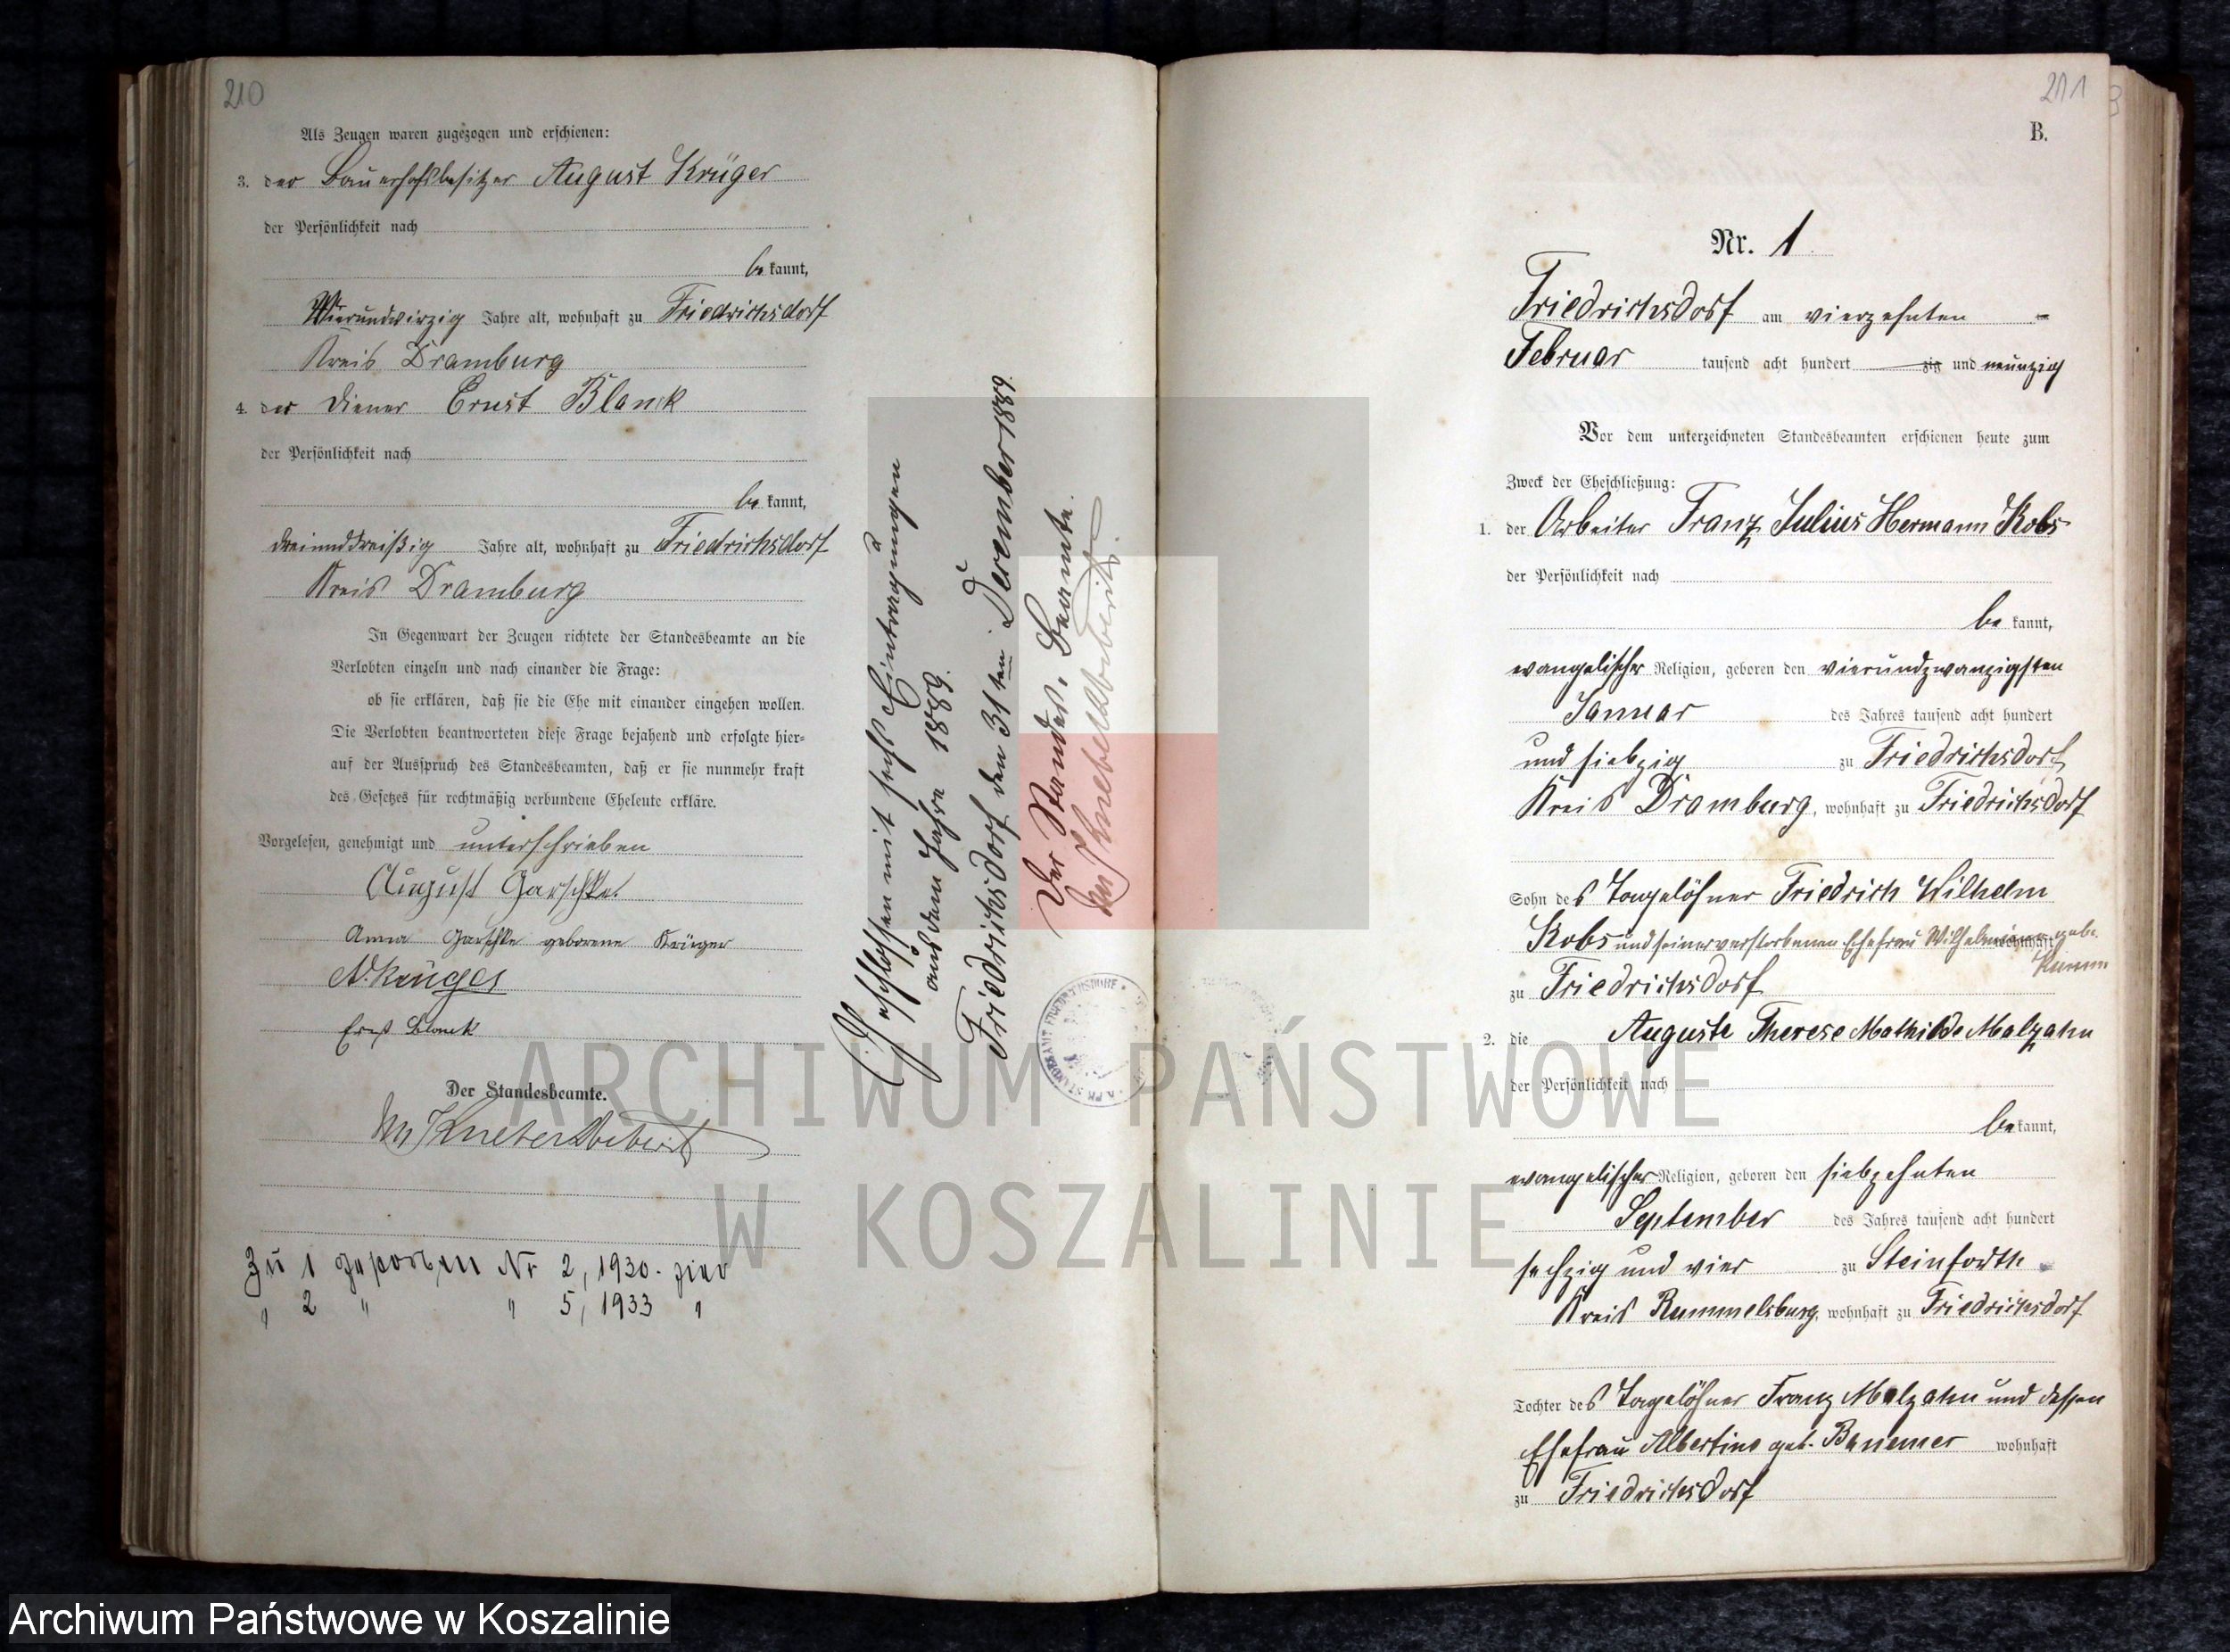 210
Als Zeugen waren zugezogen und erschienen:
3. der Bauerhofsbesitzer August Krüger
der Persönlichkeit nach
be kannt,
Vierundvirzig Jahre alt, wohnhaft zu Friedrichsdorf
Kreis Dramburg
4. der Diener Ernst Blanck
der Persönlichkeit nach
be kannt,
dreiunddreißig Jahre alt, wohnhaft zu Friedrichsdorf
Kreis Dramburg
In Gegenwart der Zeugen richtete der Standesbeamte an die
Verlobten einzeln und nach einander die Frage:
ob sie erklären, daß sie die Ehe mit einander eingehen wollen.
Die Verlobten beantworteten diese Frage bejahend und erfolgte hier=
auf der Ausspruch des Standesbeamten, daß er sie nunmehr kraft
des Gesetzes für rechtmäßig verbundene Eheleute erkläre.
Vorgelesen, genehmigt und unterschrieben
August Garschke
Anna Garschke geborene Krüger
A. Krüger
Ernst Blanck
Der Standesbeamte.
Zu 1 gestorben Nr 2, 1930. hier
" 2 " " 5, 1933 "
Geschlossen mit sechs Eintragungen
aus dem Jahre 1889.
Friedrichsdorf den 31ten December 1889.
Der Standes-Beamte.
211
B.
Nr. 1
Friedrichsdorf am vierzehnten
Februar tausend acht hundert zig und neunzig
Vor dem unterzeichneten Standesbeamten erschienen heute zum
Zweck der Eheschließung:
1. der Arbeiter Franz Julius Hermann Kobs
der Persönlichkeit nach
be kannt,
evangelischer Religion, geboren den vierundzwanzigsten
Januar des Jahres tausend acht hundert
und siebzig zu Friedrichsdorf
Kreis Dramburg, wohnhaft zu Friedrichsdorf
Sohn des Tagelöhner Friedrich Wilhelm
Kobs und seiner verstorbenen Ehefrau Wilhelmine geb.
wohnhaft
zu Friedrichsdorf
2. die Auguste Therese Mathilde Malzahn
der Persönlichkeit nach
be kannt,
evangelischer Religion, geboren den siebzehnten
September des Jahres tausend acht hundert
sechzig und vier zu Steinforth
Kreis Rummelsburg, wohnhaft zu Friedrichsdorf
Tochter des Tagelöhner Franz Malzahn und dessen
Ehefrau Albertine geb. wohnhaft
zu Friedrichsdorf
ARCHIWUM PAŃSTWOWE
W KOSZALINIE
Archiwum Państwowe w Koszalinie